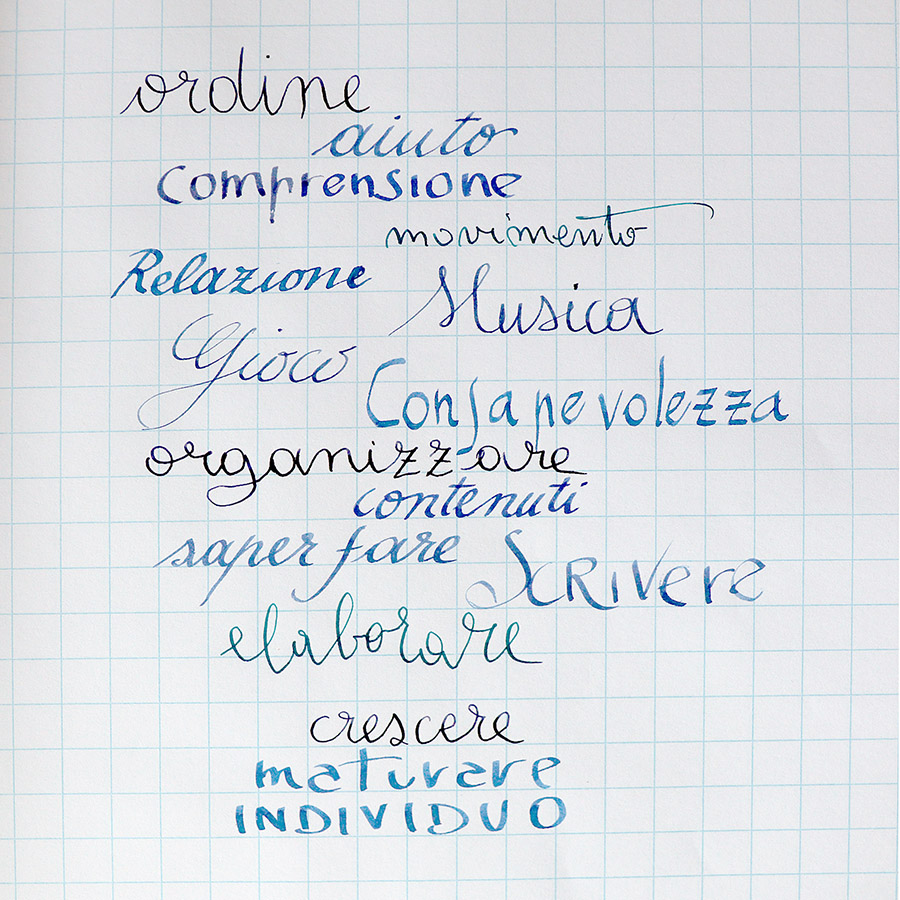 ordine
aiuto
Comprensione
movimento
Relazione
Musica
Gioco
Consapevolezza
organizzare
contenuti
saper fare
SCRIVere
elaborare
crescere
maturare
INDIVIDUO